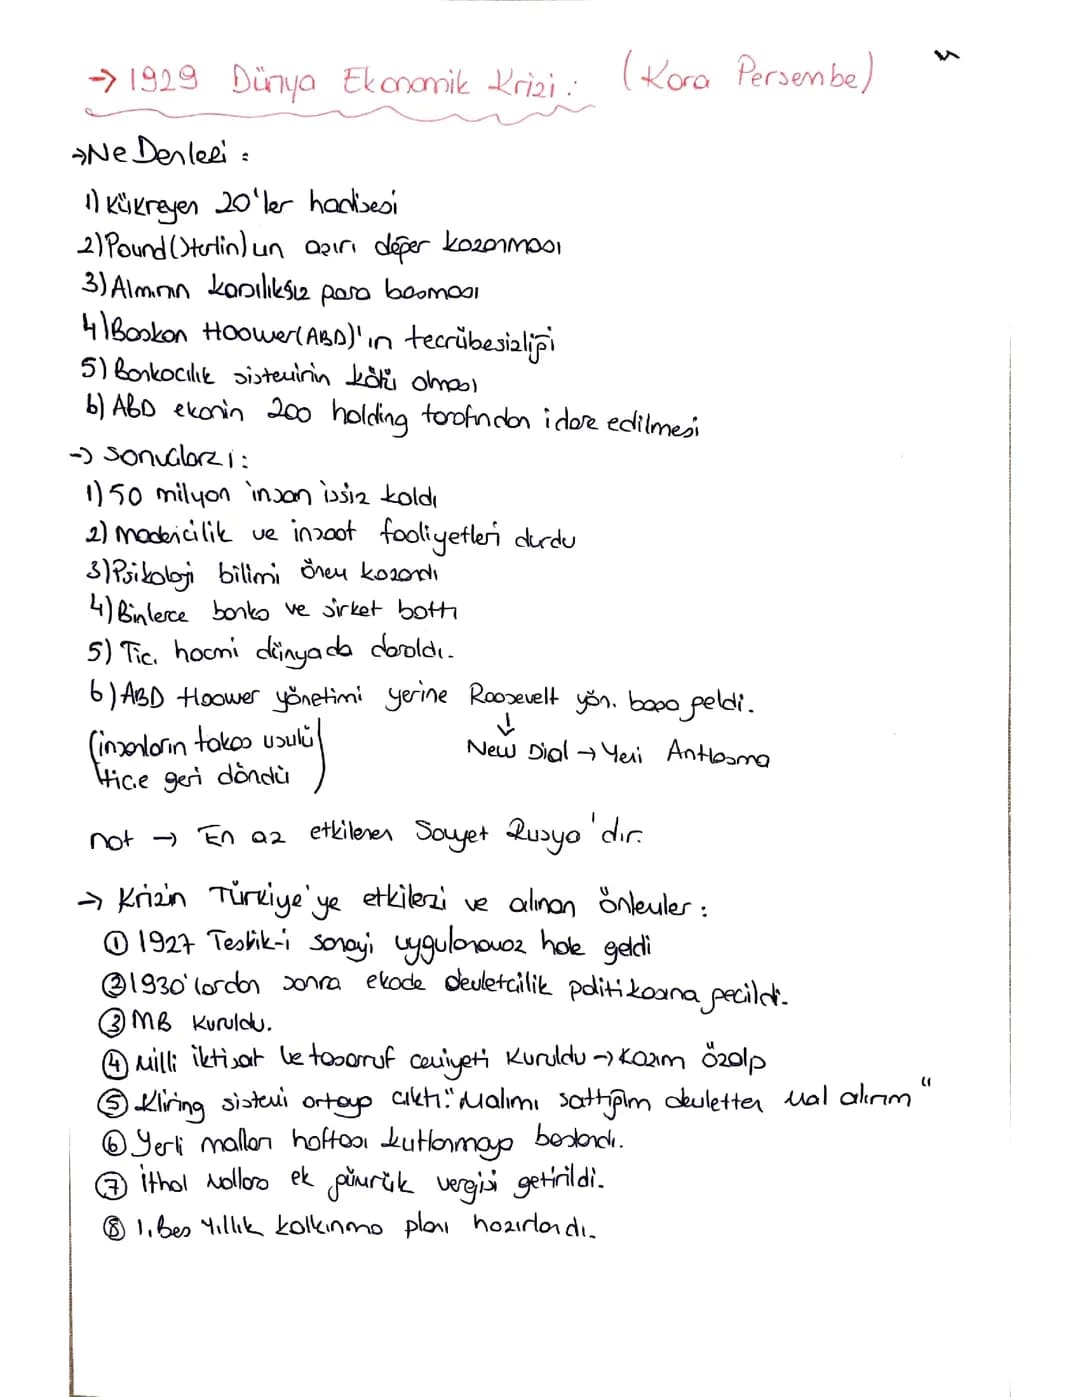 → 1929 Dünya Ekonomik Krizi : (Kara Persembe)
→ Nedenleri :
1) Kükreyen 20'ler hadisesi
2) Pound (Sterlin)un aşırı değer kazanması
3) Alm.nın karşılıksız para basması
4) Başkan Hoower(ABD)'ın tecrübesizliği
5) Bankacılık sisteminin kötü olması
6) ABD ekonin 200 holding tarafından idare edilmesi
→ Sonuçları :
1) 50 milyon insan issiz kaldı
2) Madencilik ve insaat faaliyetleri durdu
3) Psikoloji bilimi önem kazandı
4) Binlerce banka ve sirket battı
5) Tic. hacmi dünyada daraldı.
6) ABD Hoower yönetimi yerine Roosevelt yön. başa geldi.
(insanların takas usulü
tice geri döndü)
↓
New Dial → Yeni Antlaşma
not → En az etkilenen Sovyet Rusya'dır.
→ Krizin Türkiye'ye etkileri ve alınan önlemler :
① 1927 Tesvik-i sanayi uygulanamaz hale geldi
② 1930'lardan sonra ekode devletcilik politikasına gecildi.
③ MB Kuruldu.
④ Milli iktisat ve tasarruf cemiyeti Kuruldu → Kazım Özalp
⑤ Kliring sistemi ortaya cıktı. "Malımı sattığım devletten mal alırım"
⑥ Yerli malları haftası kutlanmaya başlandı.
⑦ İthal Mallara ek gümrük vergisi getirildi.
⑧ 1. Bes Yıllık kalkınma planı hazırlandı.